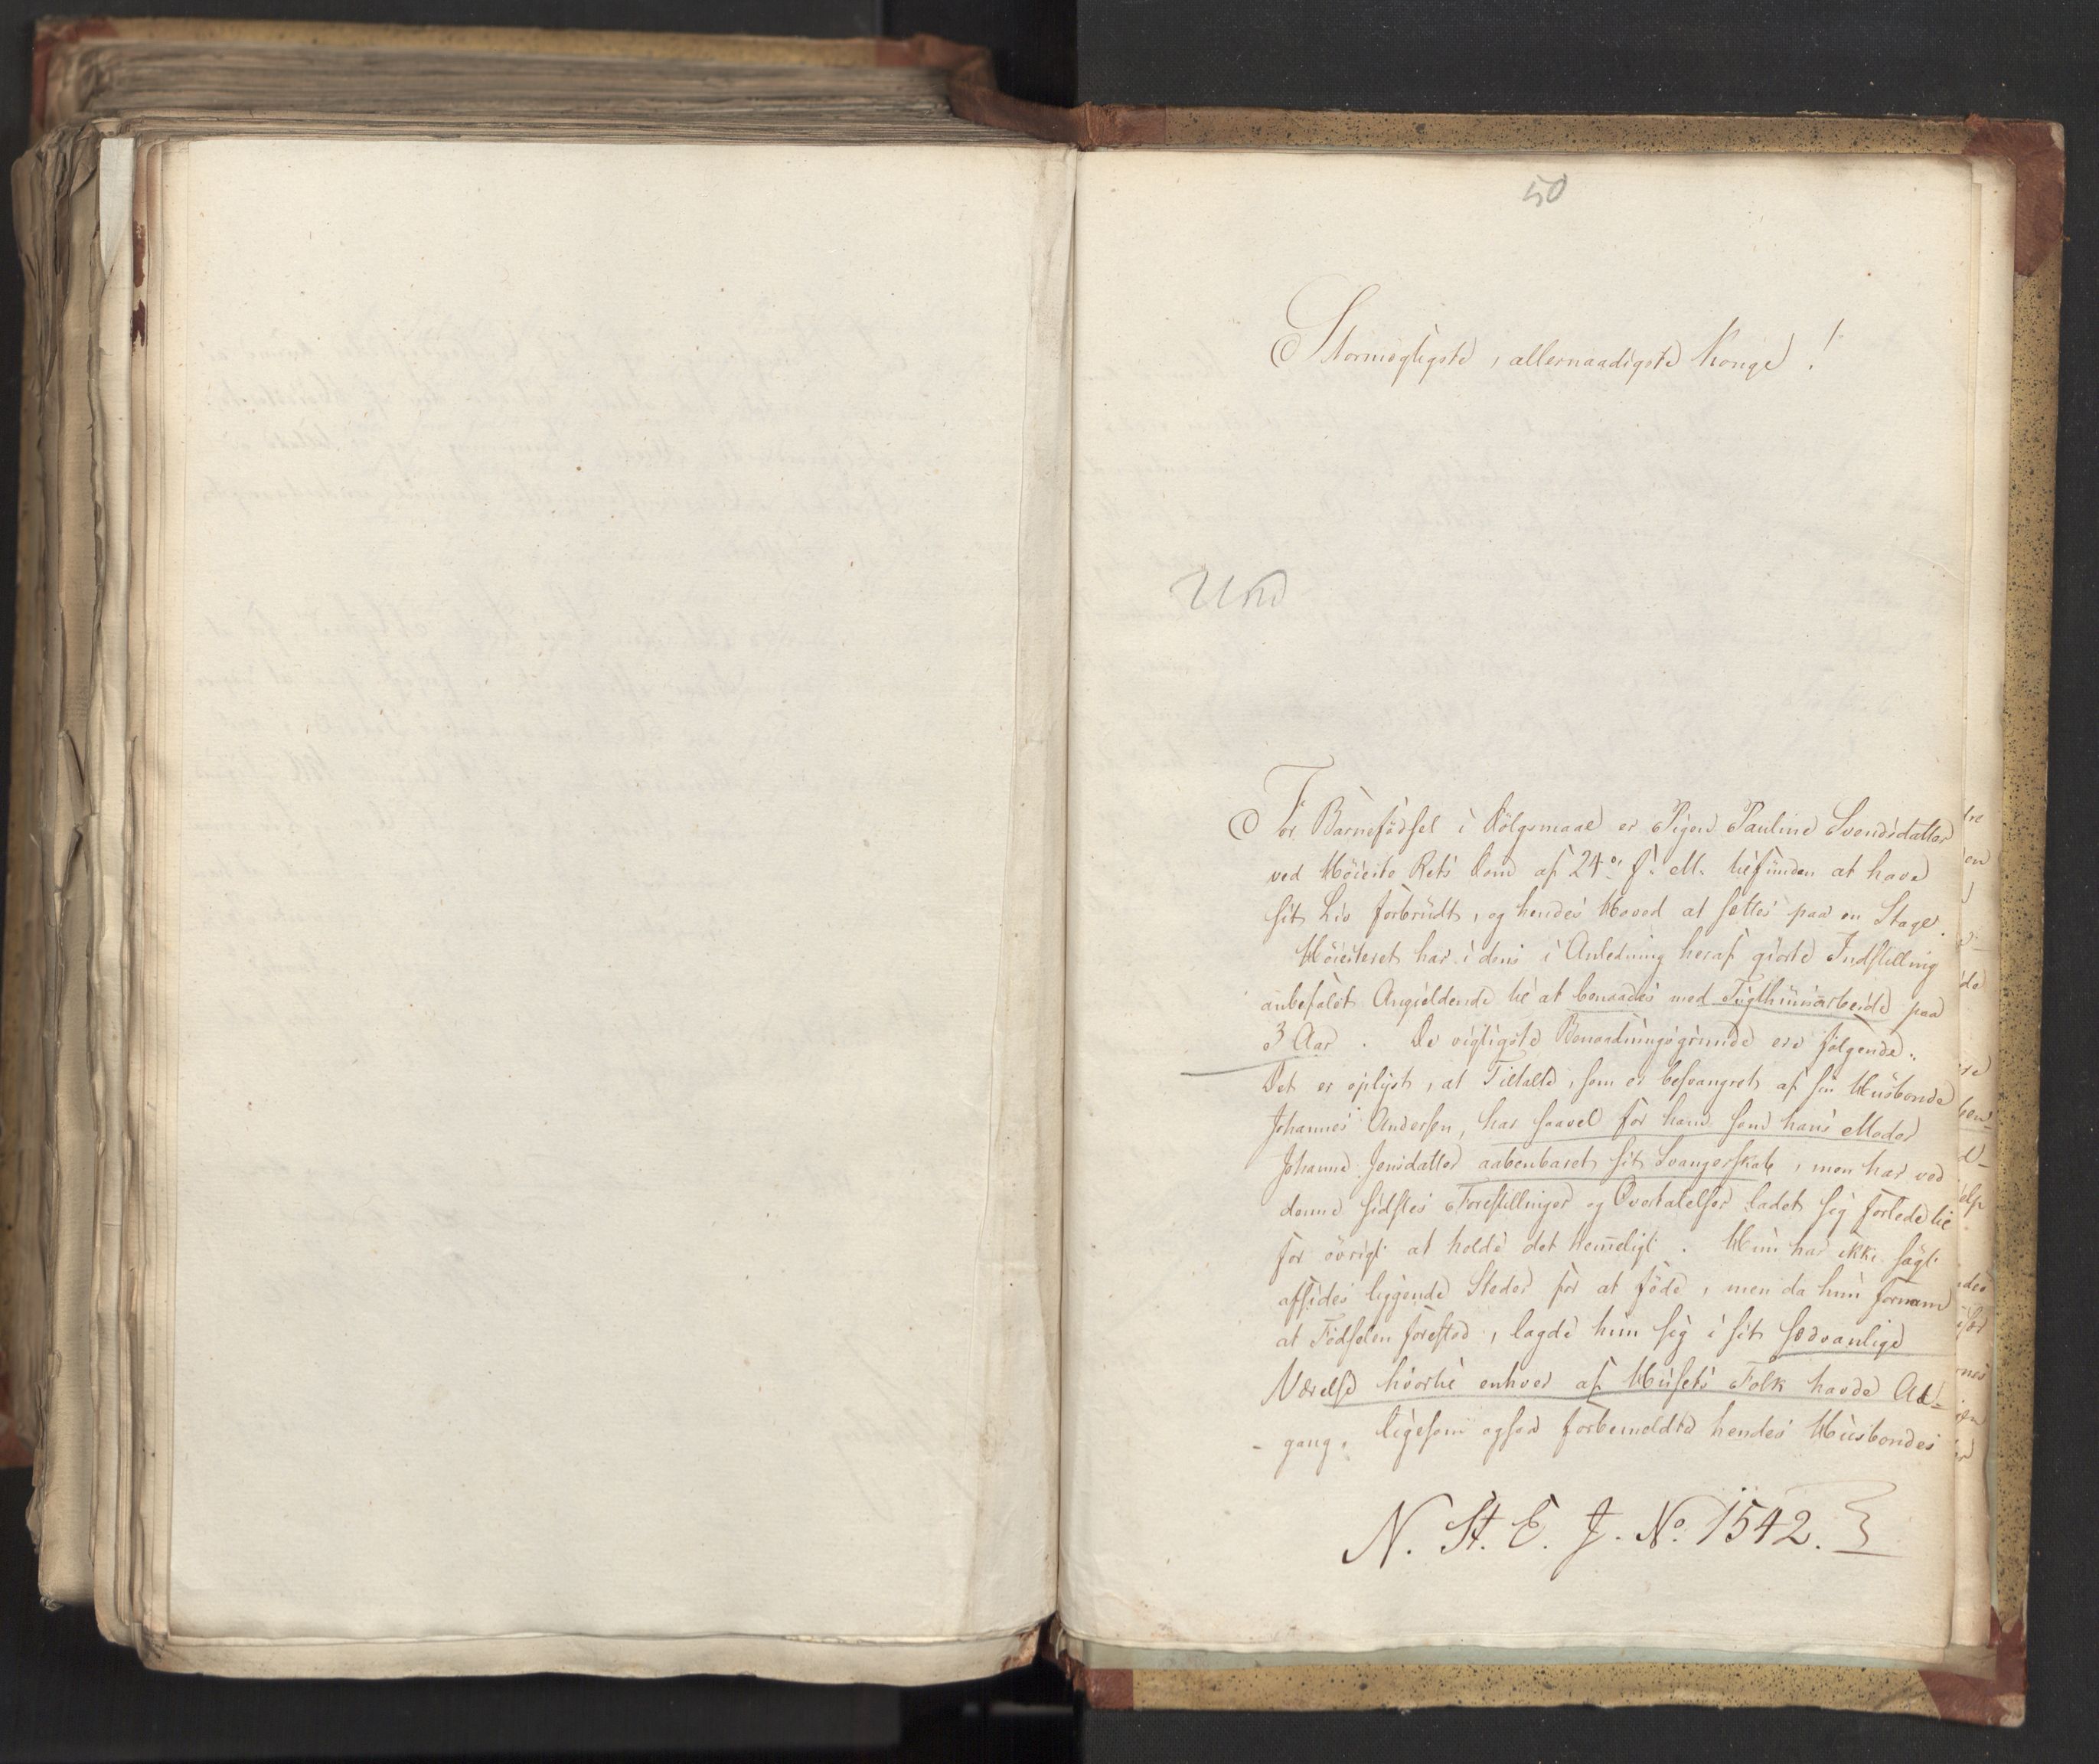 50
Stormægtigste, allernaadigste Konge!
Und
For Barnefödsel i Dölgsmaal er Pigen Pauline Svendsdatter
ved Höieste Rets Dom af 24de f. M. befunden at have
sit Liv forbrudt, og hendes Hoved at sættes paa en Stage.
Höiesteret har i dens i Anledning heraf giorte Indstilling
anbefalet Angieldende til at benaades med Tugthuusarbeide paa
3 Aar. De vigtigste Benaadningsgrunde ere fölgende:
Det er oplyst, at Tiltalte, som er besvangret af sin Huusbonde
Johannes Andersen, har saavel for ham som hans Moder
Johanne Jensdatter aabenbaret sit Svangerskab, men har ved
denne sidstes Forestillinger og Overtalelser ladet sig forlede til
for övrigt at holde det hemeligt. Hun har ikke sögt
afsides liggende Steder for at föde, men da hun fornam
at Födselen forestod, lagde hun sig i sit sedvanlige
Værelse hvortil enhver af Husets Folk havde Ad-
-gang, ligesom ogsaa forbemeldte hendes Huusbondes
N. St. E. J. No. 1542.